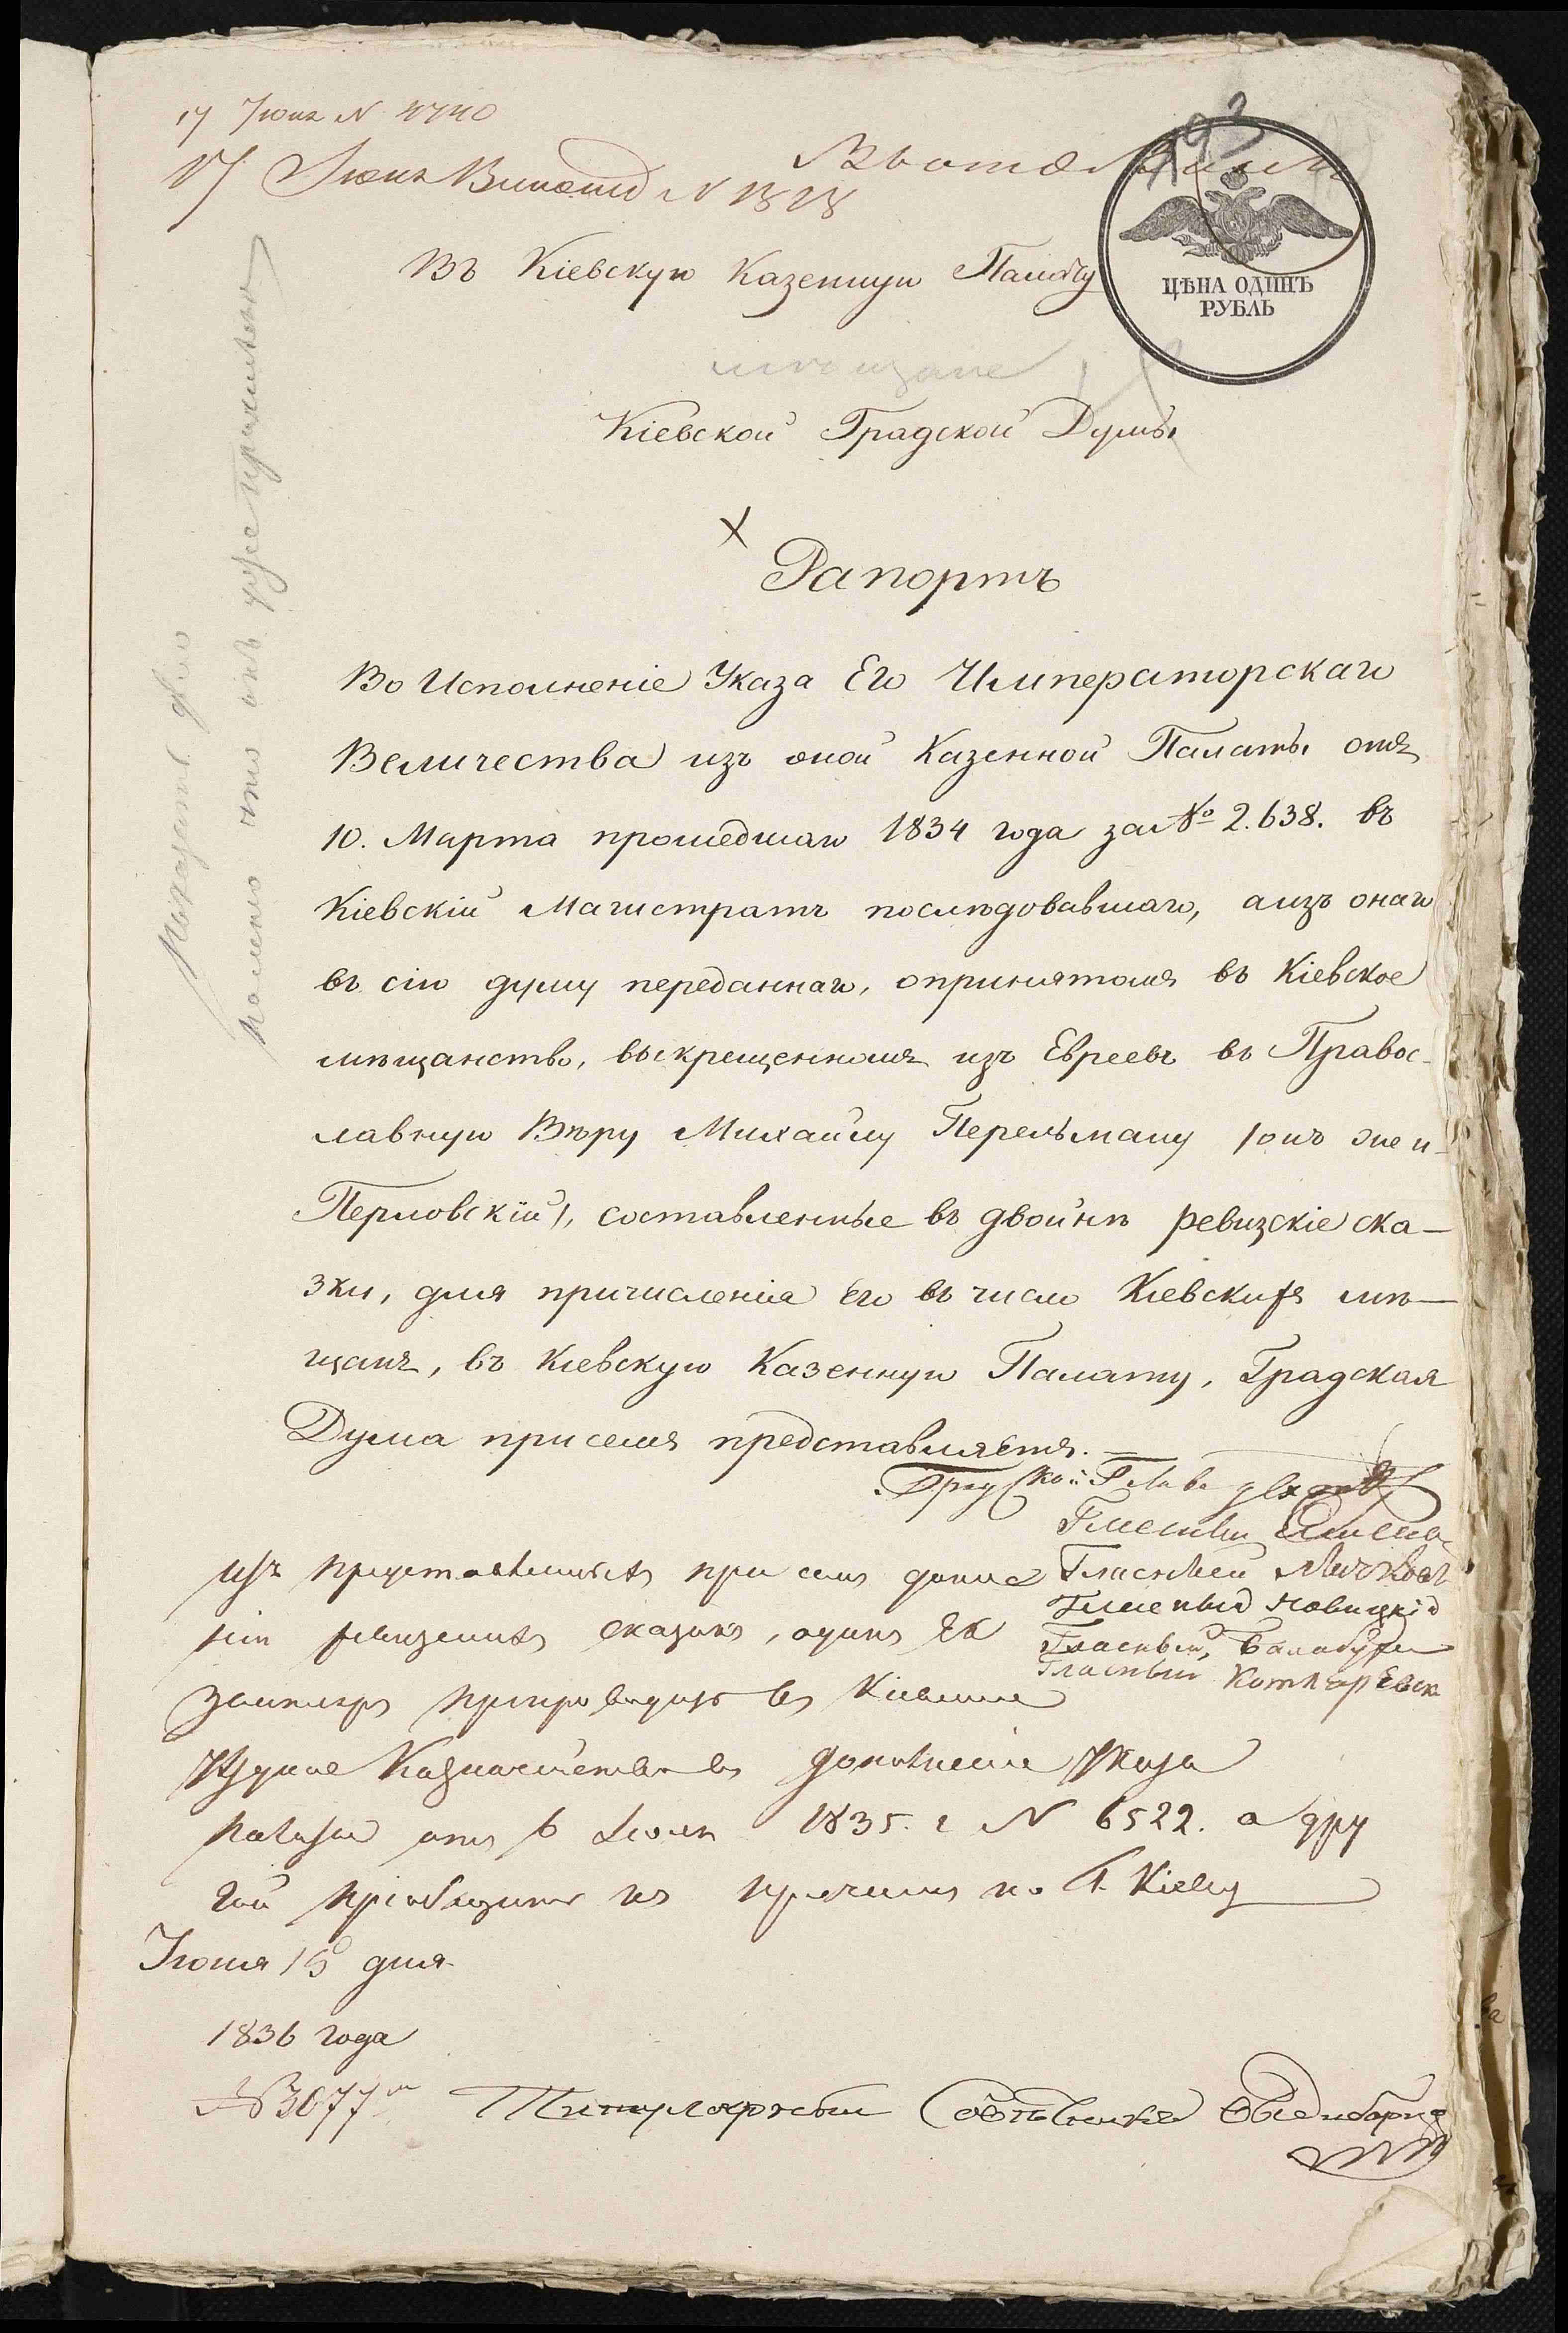 17 Іюня N 4740
17 Іюня N 1818
192
Въ Кіевскую Казенную Палату
ЦѢНА ОДИНЪ
РУБЛЬ
мѣщане
Кіевской Градской Думы
Рапортъ
Во Исполненіе Указа Его Императорскаго
Величества изъ оной Казенной Палаты отъ
10. Марта прошедшаго 1834 года за № 2.638. въ
Кіевскій Магистратъ послѣдовавшаго, а изъ онаго
въ сію думу переданнаго, о принятомъ въ Кіевское
мѣщанство, выкрещенномъ изъ Евреевъ въ Правос-
лавную Вѣру Михайлу Перельману /онъ же и
Перловскій/, составленные въ двойнѣ ревизскіе ска-
зки, для причисленія его въ число Кіевскихъ мѣ-
щанъ, въ Кіевскую Казенную Палату, Градская
Дума при семъ представляетъ. =
Градской Глава
Гласный
Гласный
Гласный Новицкій
Гласный, Балабуха
Гласный Котляревск
изъ представленныхъ при семъ
ревизскихъ сказокъ, одинъ эк
земпляръ препроводить въ Кіевское
Уѣздное Казначейство въ дополненіе Указа
Палаты отъ 6 Іюля 1835. г N 6522. а дру
гой пріобщить къ прочимъ по г. Кіеву
Іюня 15 дня
1836 года
№ 3077
Титулярный Совѣтникъ
показать
что онъ уже причисленъ